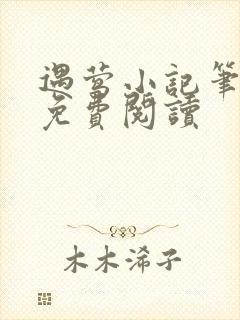 遇萤小記筆
免費閱讀
木木浠子